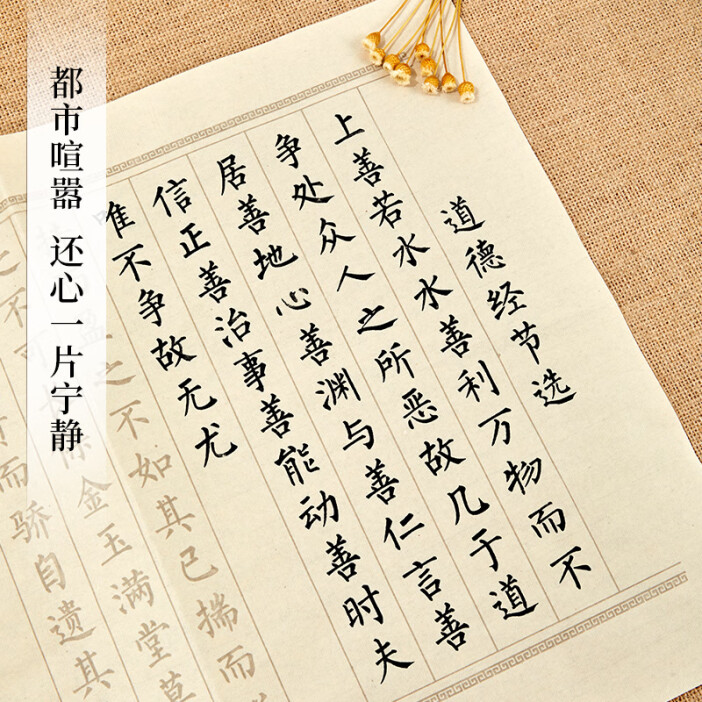 都市喧嚣 还心一片宁静
道德经节选
上善若水水善利万物而不
争处众人之所恶故几于道
居善地心善渊与善仁言善
信正善治事善能动善时夫
唯不争故无尤
盈之不如其已揣而
之不可保金玉满堂莫
而骄自遗其